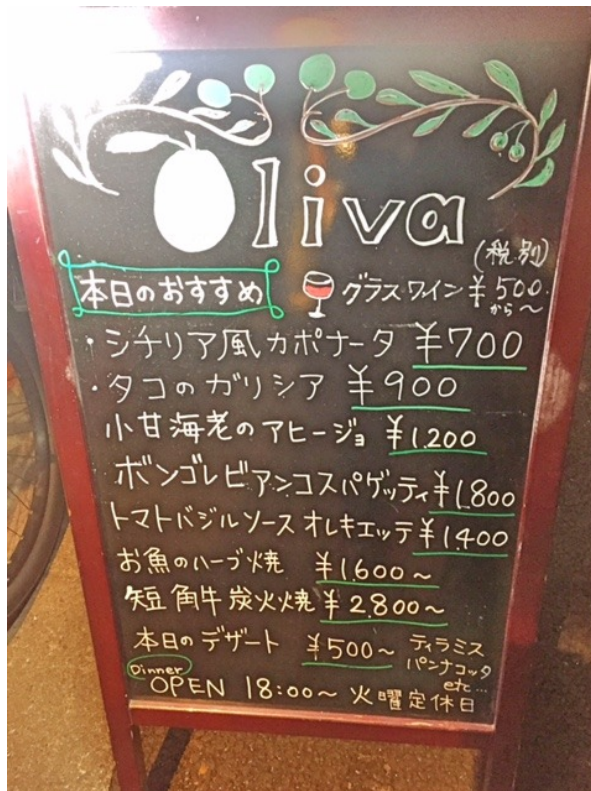 Oliva
(税別)
本日のおすすめ グラスワイン ¥500
から〜
・シチリア風カポナータ ¥700
・タコのガリシア ¥900
小甘海老のアヒージョ ¥1,200
ボンゴレビアンコスパゲッティ ¥1,800
トマトバジルソース オレキエッテ ¥1,400
お魚のハーブ焼 ¥1,600〜
短角牛炭火焼 ¥2,800〜
本日のデザート ¥500〜 ティラミス
パンナコッタ
etc...
Dinner
OPEN 18:00〜 火曜定休日